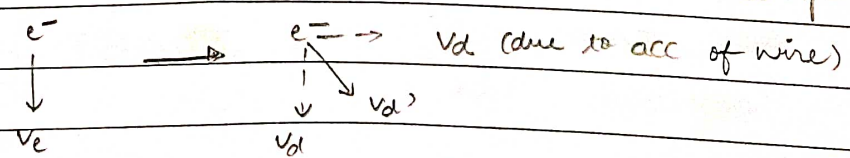 e⁻ e⁻ Vd (due to acc of wire)
Vd'
Ve Vd